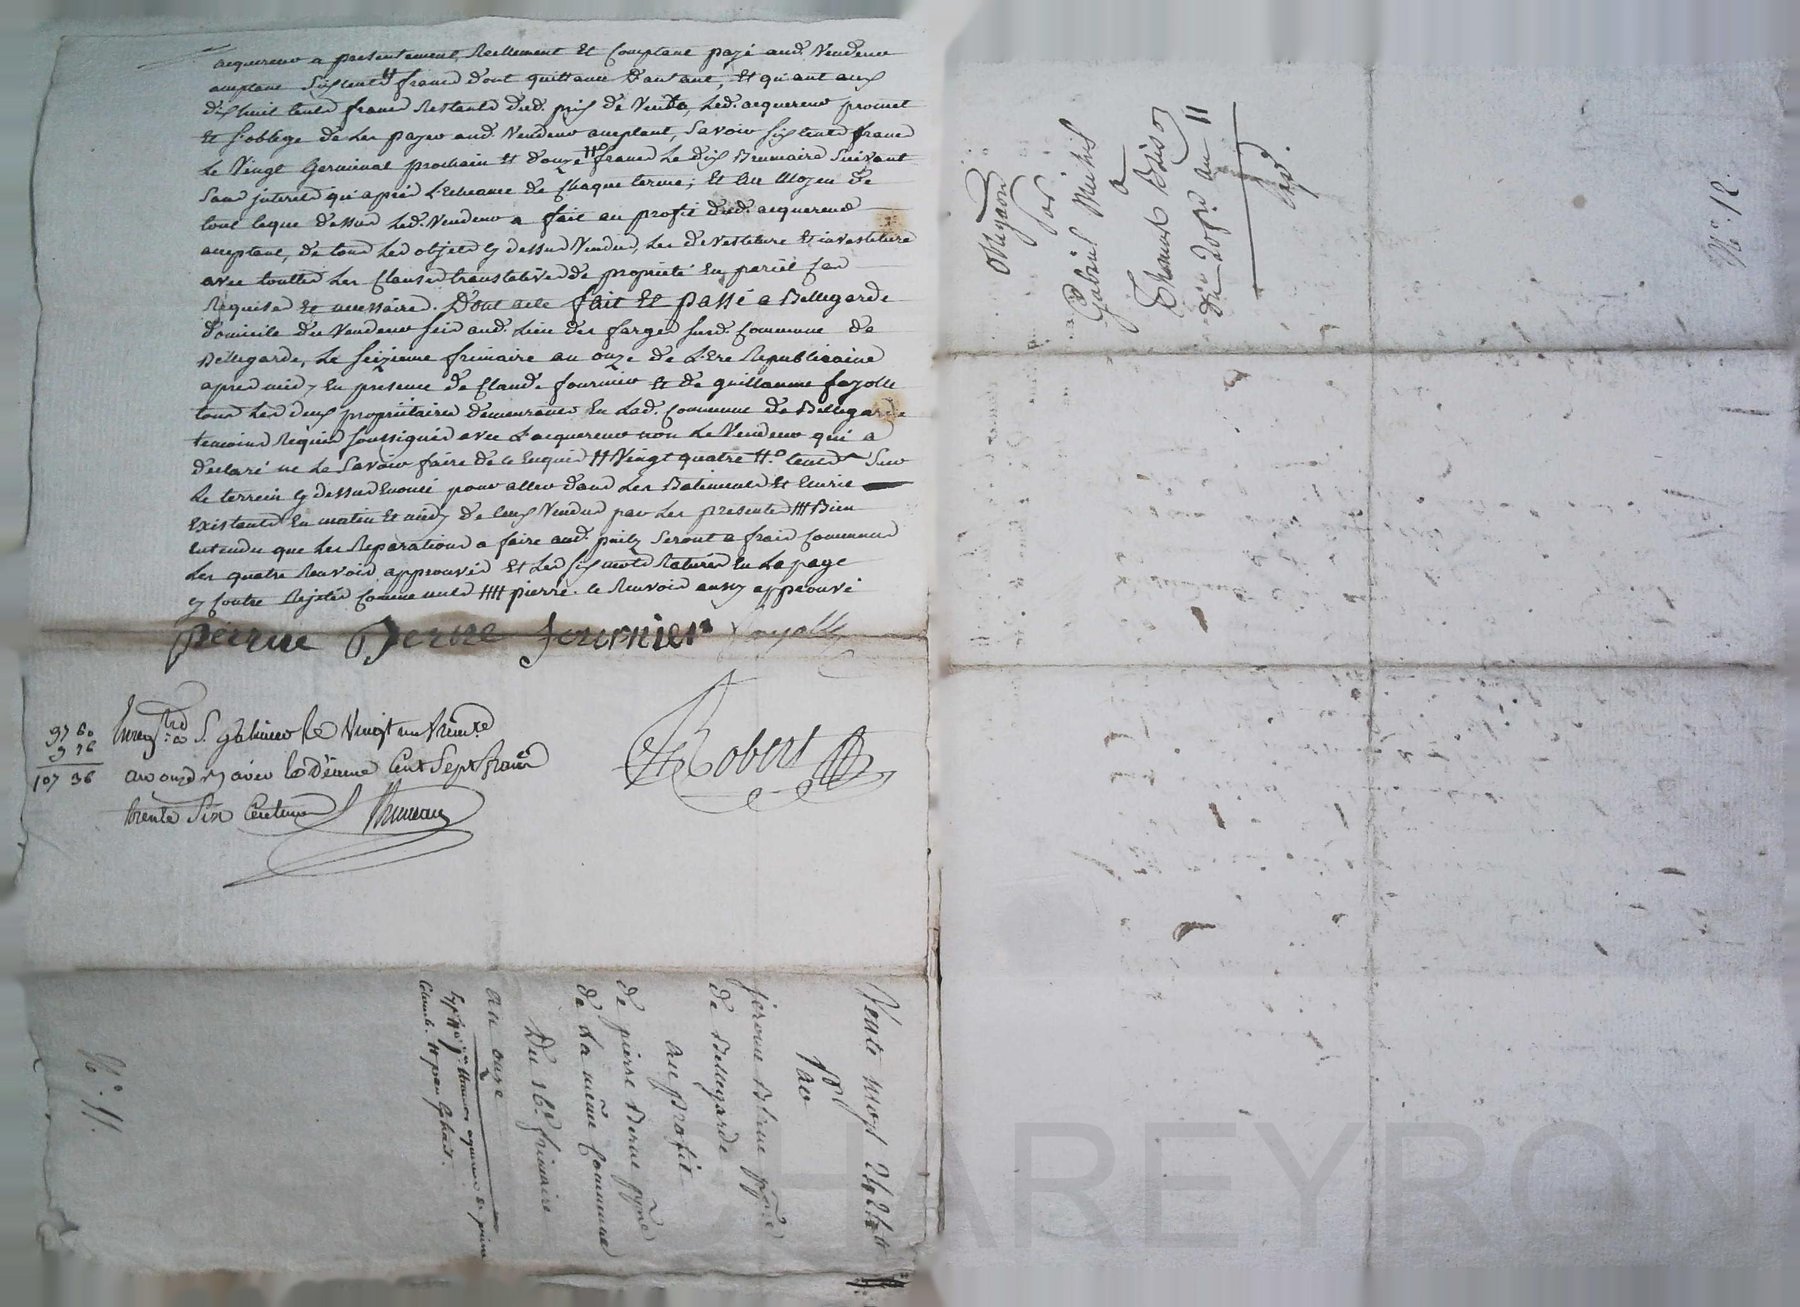 acquereur a presentement, Reellement et Comptant payé aud. Vendeur
acceptant Six cents francs dont quittance d'autant, et quant aux
dix huit cents francs Restants dud. prix de Vente, led. acquereur promet
et s'oblige de les payer aud. Vendeur acceptant, Savoir six cents francs
le Vingt Germinal prochain et douze # francs le dix Brumaire Suivant
Sans interets qu'après l'Echeance de Chaque terme; et au Moyen de
tout ceque dessus led. Vendeur a fait au profit dud. acquereur
acceptant, de tous les objets cy dessus Vendus, les devestiture et investiture
avec touttes les Clauses translatives de propriété En pareil Cas
Requises et necessaires. Dont acte fait et passé a Bellegarde
domicile du Vendeur scis aud. lieu des farges susd. Commune de
Bellegarde, le seizieme frimaire an onze de l'Ere Republicaine
apres midy En presence de Claude fournier et de guillaume fayolle
tous les deux propriétaires demeurants En lad. Commune de Bellegarde
temoins Requis soussignés avec l'acquereur non le Vendeur qui a
declaré ne le Savoir faire de ce Enquis # Vingt quatre #.° cents Sur
le terrein cy dessus Enoncé pour aller dans les Batiments et Ecurie
Existants En matin et midy de ceux Vendus par les presentes ### Bien
entendu que les Reparations a faire aud. puits Seront a frais Communs
les quatre Renvois approuvés et les six mots Raturés En la page
cy contre Rejetés Comme nuls #### pierre. le Renvoi aussy approuvé
pierre Berne fournier fayolle
97 60
9 76
107 36
Enregistré a S. Galmier le Vingt un frimaire
an onze Rs avec le Dixieme Cent Sept francs
trente Six Centimes
Robert
Vente moyt 2400 #
par
jerome Blanc ppre
de Bellegarde
au profit
de pierre Berne ppre
de la même Commune
Du 16.e frimaire
an onze
N.° 11.
obligaon
par
Gabriel
a
Thomas
an 11
N.° 12.
CHAREYRON